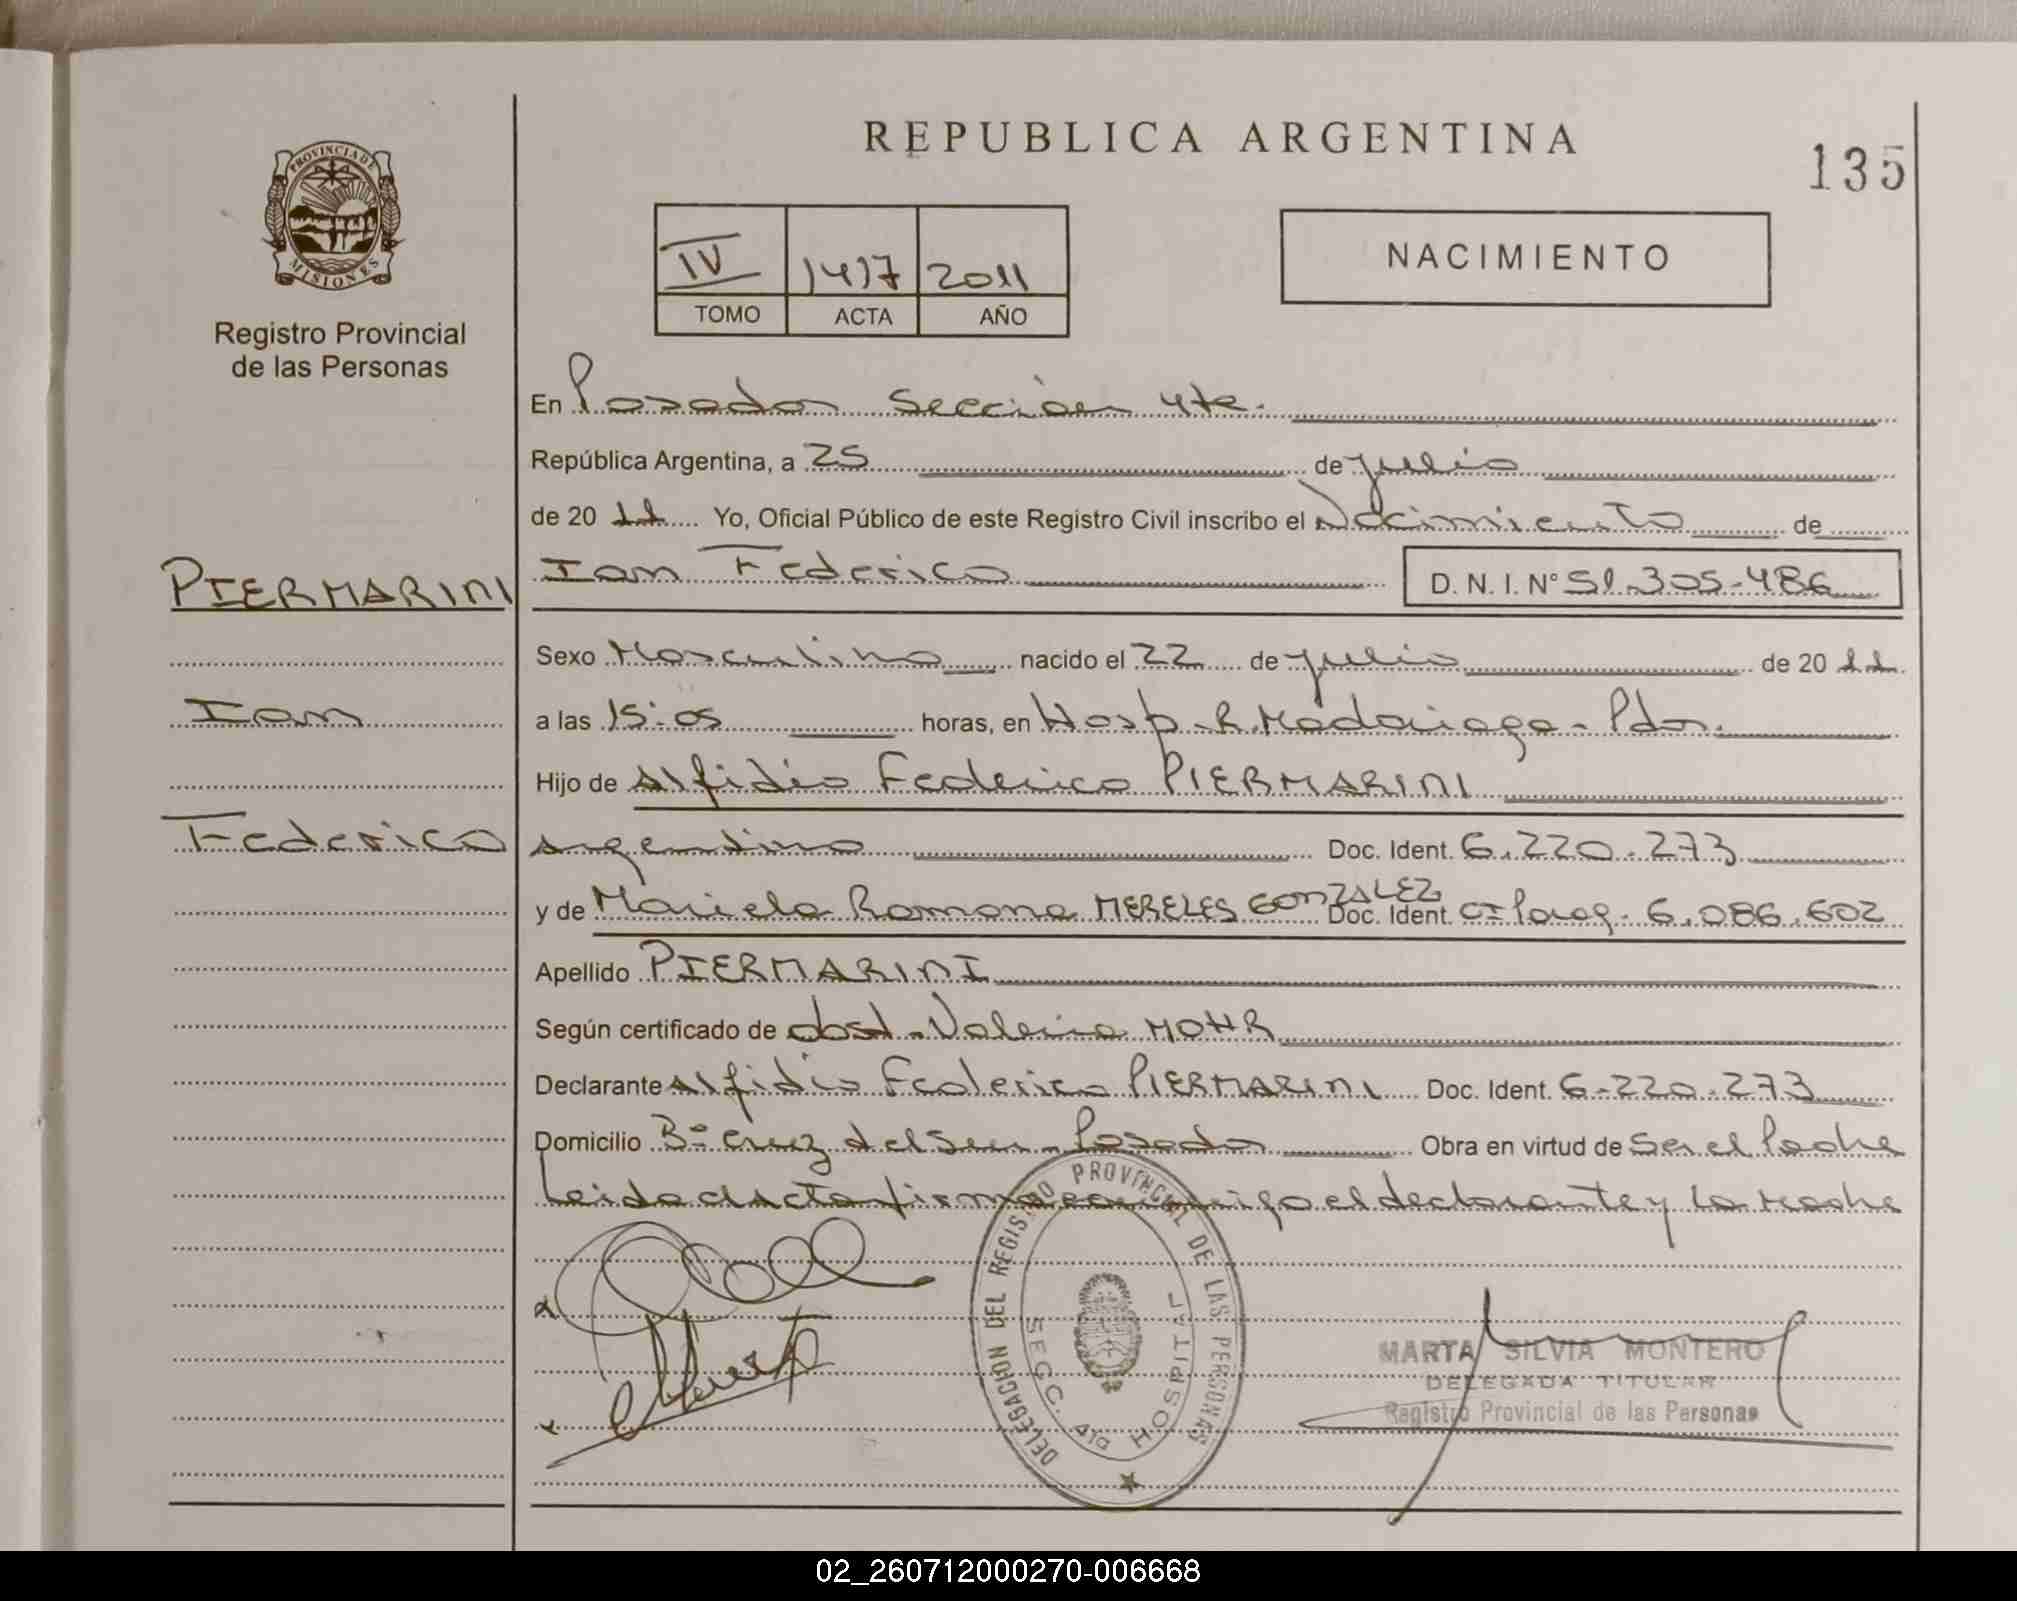 REPUBLICA ARGENTINA
135
PROVINCIA DE
MISIONES
Registro Provincial
de las Personas
IV 1417 2011
TOMO ACTA AÑO
NACIMIENTO
En Posadas Sección 4ta.
República Argentina, a 25 de julio
de 20 11 Yo, Oficial Público de este Registro Civil inscribo el Nacimiento de
PIERMARINI
Ian Federico D. N. I. N° 51.305.486
Sexo Masculino nacido el 22 de julio de 20 11
Ian
a las 15:05 horas, en Hosp. R. Madariaga - Pdas.
Hijo de Alfidio Federico PIERMARINI
Federico
argentino Doc. Ident. 6.220.273
y de Mariela Ramona MERELES GONZALEZ Doc. Ident. CI Parag. 6.086.602
Apellido PIERMARINI
Según certificado de obst. Valeria MOHR
Declarante Alfidio Federico PIERMARINI Doc. Ident. 6.220.273
Domicilio B° Cruz del Sur - Posadas Obra en virtud de Ser el Padre
Leida el Acta firma conmigo el declarante y la Madre
DELEGACION DEL REGISTRO PROVINCIAL DE LAS PERSONAS
SECC. 4ta HOSPITAL
MARTA SILVIA MONTERO
DELEGADA TITULAR
Registro Provincial de las Personas
02_260712000270-006668